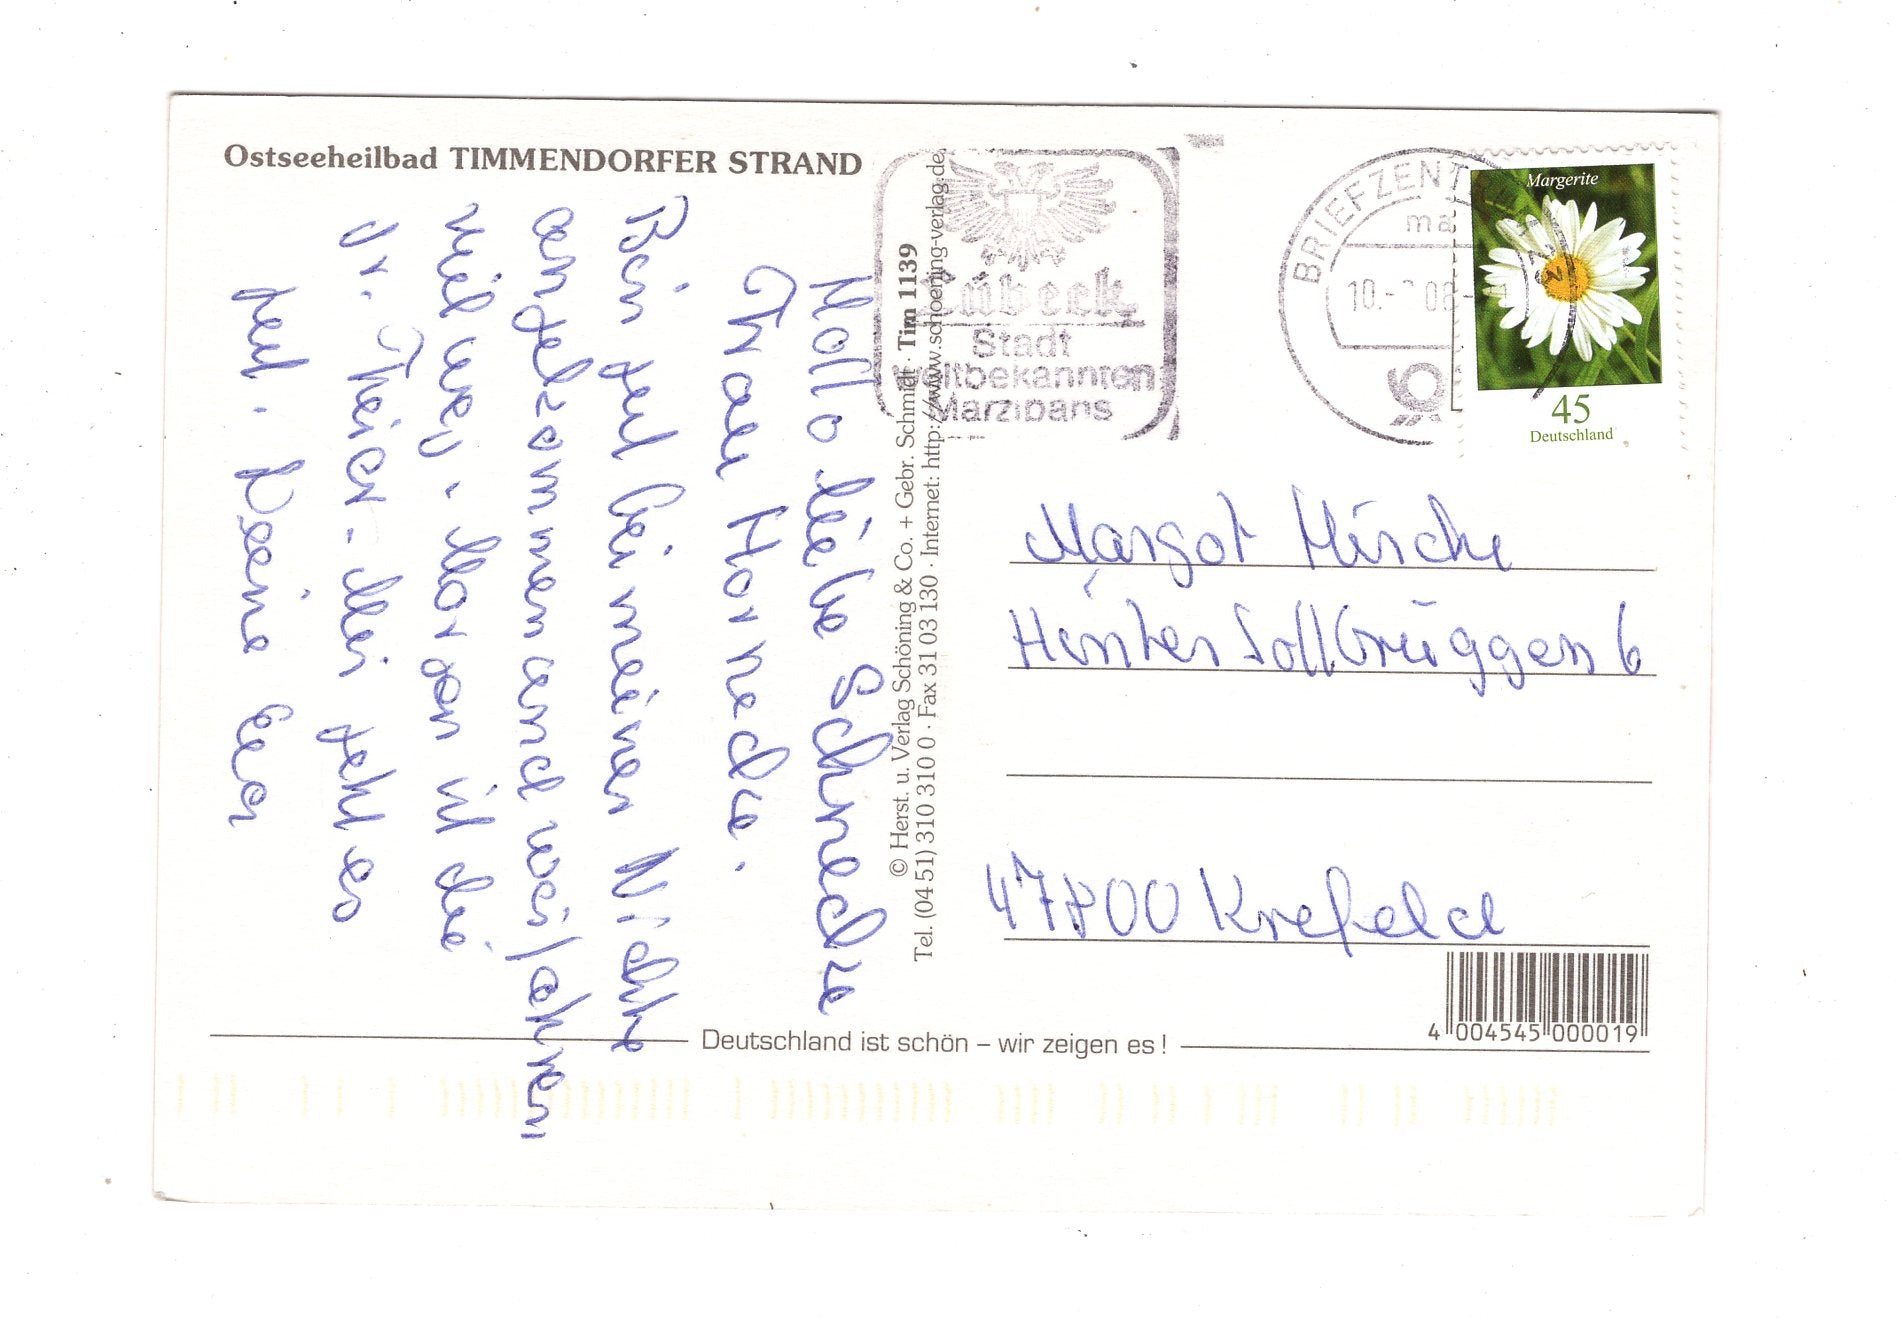 Ostseeheilbad TIMMENDORFER STRAND
Hallo liebe Schnecke
Frau Hornecke.
Bin gut bei meiner Nichte
angekommen und wir fahren
viel weg. Morgen ist die
dr. Mir geht es
gut. Deine
© Herst. u. Verlag Schöning & Co. + Gebr. Schmidt · Tim 1139
Tel. (04 51) 310 310 0 · Fax 31 03 130 · Internet: http://www.schoening-verlag.de
Lübeck
Stadt
weltbekannten
Marzipans
BRIEFZENT
ma
10.- 08-
Margerite
45
Deutschland
Margot Mirche
Hinter Sollbrüggen 6
47800 Krefeld
4 004545 000019
Deutschland ist schön – wir zeigen es !